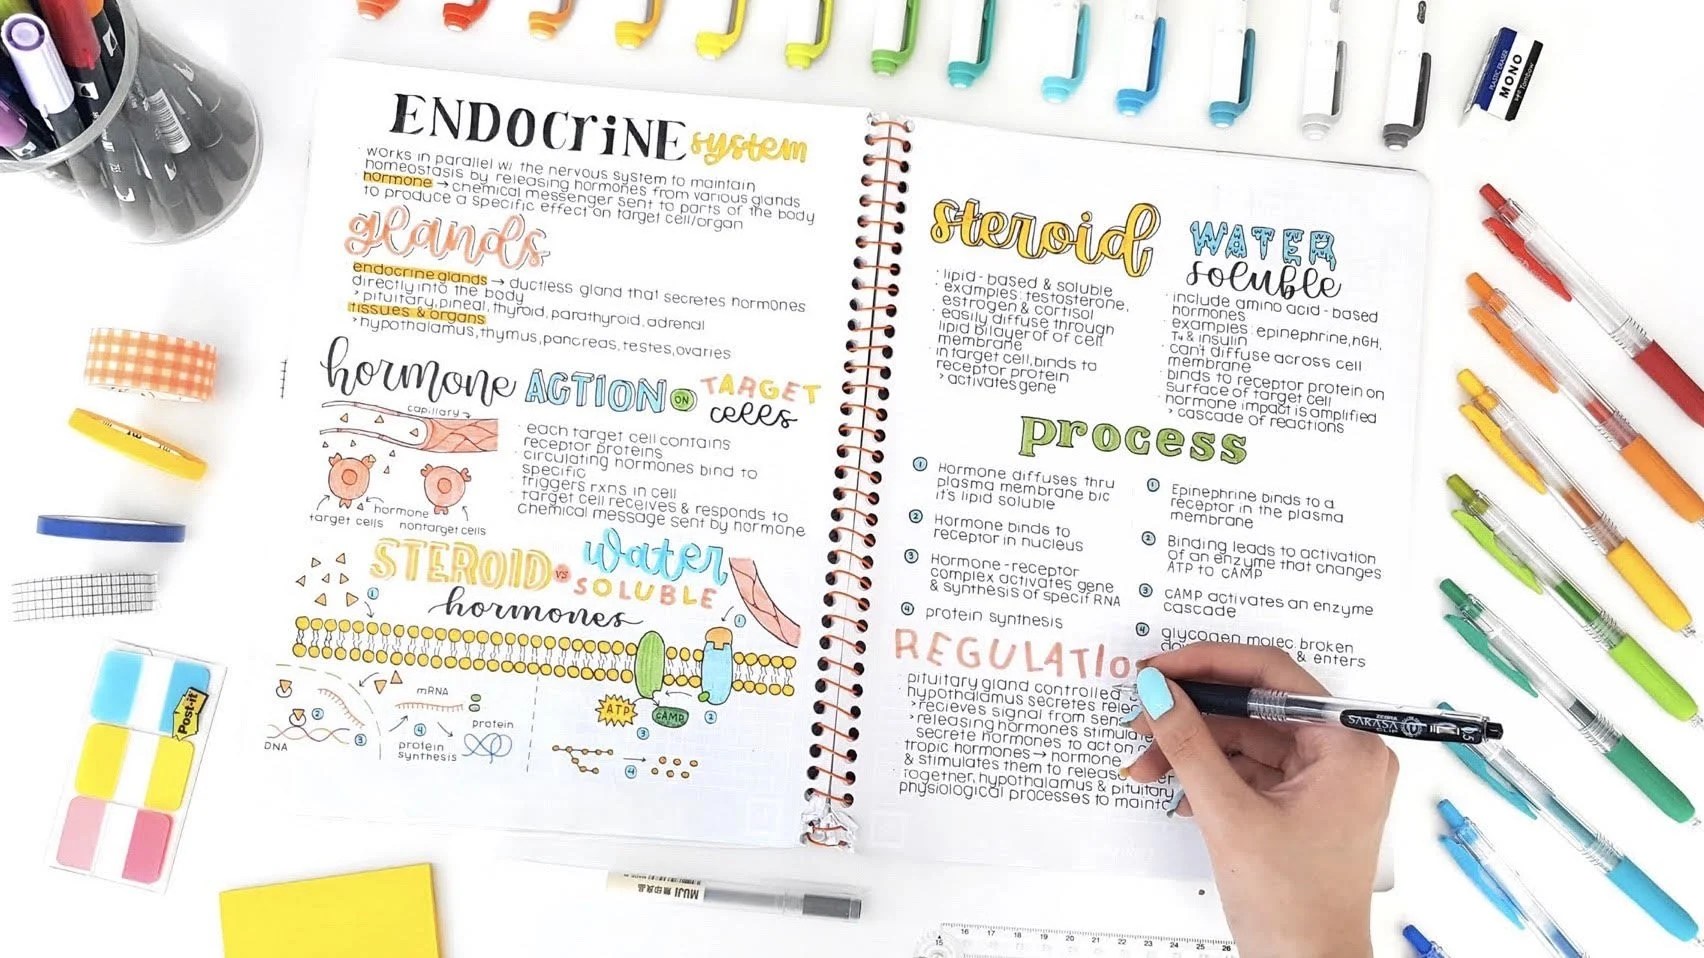 ENDOCRINE system
· works in parallel w/ the nervous system to maintain
homeostasis by releasing hormones from various glands
hormone → chemical messenger sent to parts of the body
to produce a specific effect on target cell/organ
glands
endocrine glands → ductless gland that secretes hormones
directly into the body
> pituitary, pineal, thyroid, parathyroid, adrenal
tissues & organs
> hypothalamus, thymus, pancreas, testes, ovaries
hormone ACTION ON TARGET
cells
capillary
hormone
target cells
nontarget cells
· each target cell contains
receptor proteins
· circulating hormones bind to
specific
· triggers rxns in cell
· target cell receives & responds to
chemical message sent by hormone
STEROID vs water
SOLUBLE
hormones
1
1
mRNA
ATP
CAMP
2
2
3
DNA
3
4
protein
synthesis
protein
4
steroid
· lipid-based & soluble
· examples: testosterone,
estrogen & cortisol
· easily diffuse through
lipid bilayer of of cell
membrane
· in target cell, binds to
receptor protein
> activates gene
WATER
soluble
· include amino acid-based
hormones
· examples: epinephrine, hGH,
T4 & insulin
· can't diffuse across cell
membrane
· binds to receptor protein on
surface of target cell
· hormone impact is amplified
> cascade of reactions
process
1 Hormone diffuses thru
plasma membrane b/c
it's lipid soluble
2 Hormone binds to
receptor in nucleus
3 Hormone-receptor
complex activates gene
& synthesis of specif RNA
4 protein synthesis
1 Epinephrine binds to a
receptor in the plasma
membrane
2 Binding leads to activation
of an enzyme that changes
ATP to CAMP
3 CAMP activates an enzyme
cascade
4 glycogen molec. broken
& enters
REGULATIO
pituitary gland controlled
· hypothalamus secretes
> recieves signal from
> releasing hormones
secrete hormones to act on
tropic hormones → hormone
& stimulates them to release
together, hypothalamus & pituitary
physiological processes to
MONO
PLASTIC ERASER
Tombow
Post-it
MUJI 無印良品
ZEBRA
SARASA
CLIP
0.5
15 16 17 18 19 20 21 22 23 24 25 26